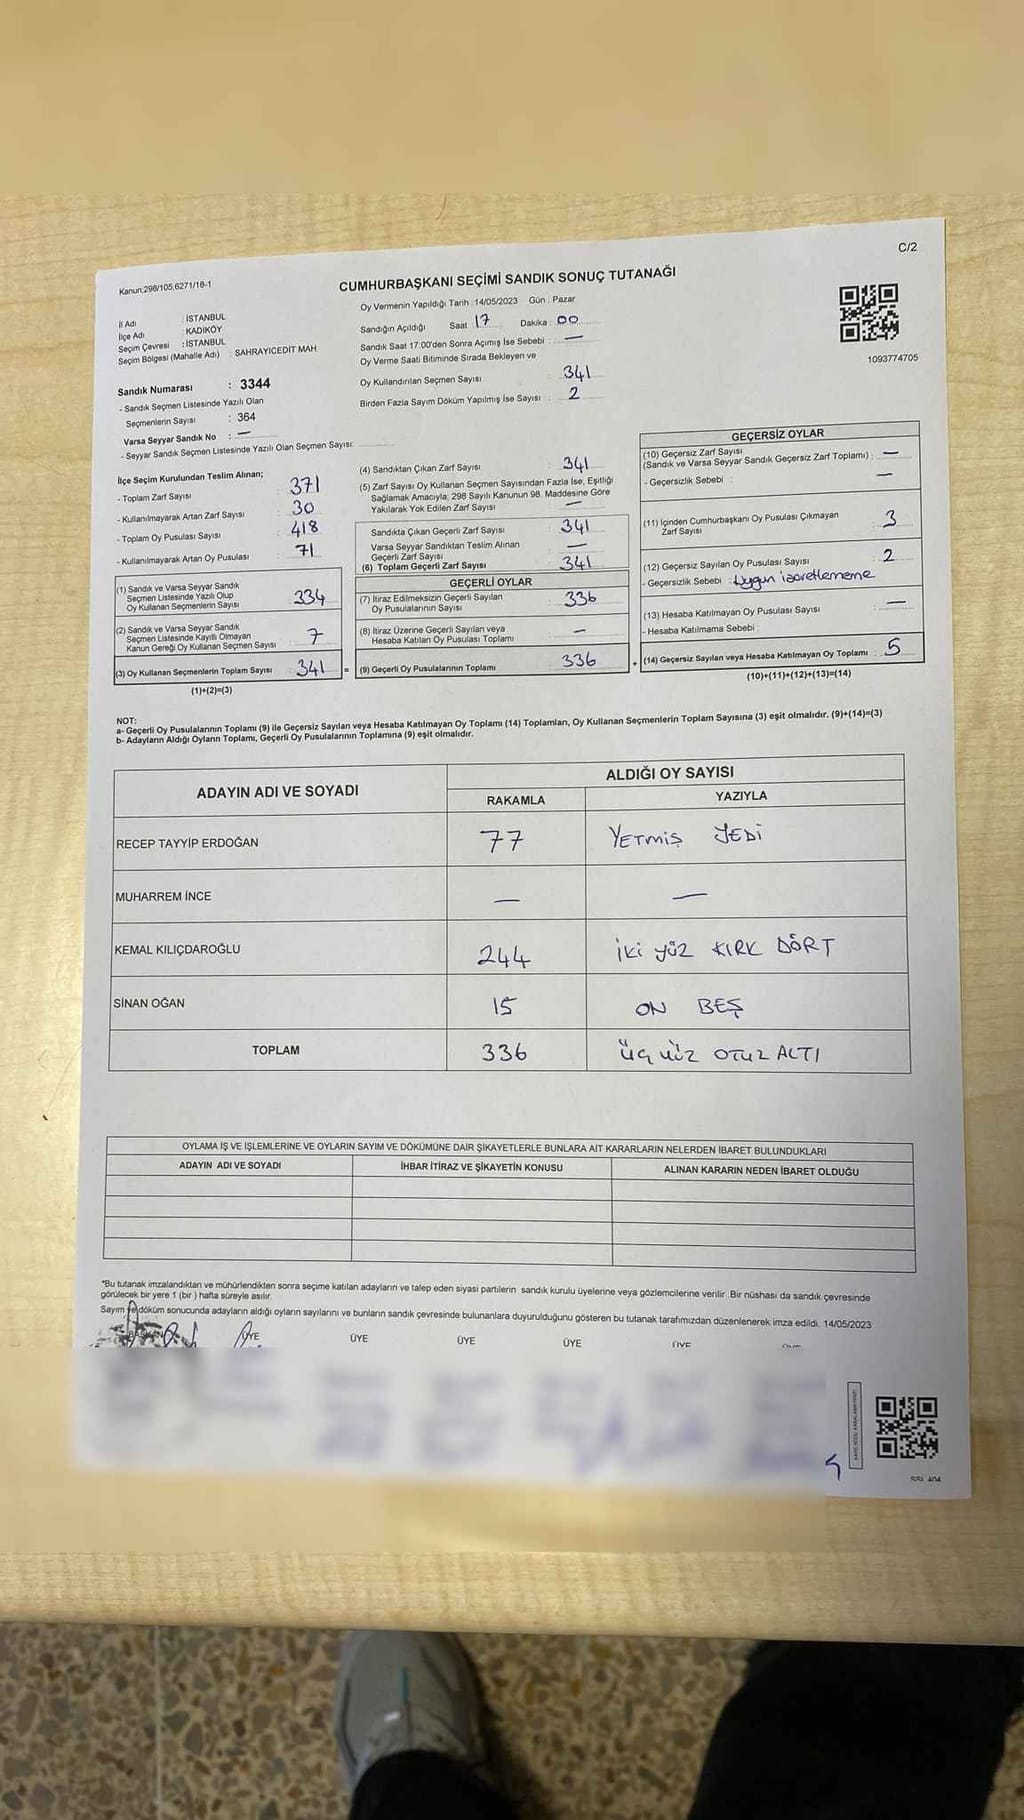 C/2
Kanun;298/105,6271/18-1
CUMHURBAŞKANI SEÇİMİ SANDIK SONUÇ TUTANAĞI
1093774705
İl Adı : İSTANBUL
İlçe Adı : KADIKÖY
Seçim Çevresi : İSTANBUL
Seçim Bölgesi (Mahalle Adı) : SAHRAYICEDİT MAH.
Sandık Numarası : 3344
- Sandık Seçmen Listesinde Yazılı Olan
Seçmenlerin Sayısı : 364
Varsa Seyyar Sandık No : —
- Seyyar Sandık Seçmen Listesinde Yazılı Olan Seçmen Sayısı:
Oy Vermenin Yapıldığı Tarih : 14/05/2023 Gün : Pazar
Sandığın Açıldığı Saat 17 Dakika 00
Sandık Saat 17.00'den Sonra Açımış İse Sebebi : —
Oy Verme Saati Bitiminde Sırada Bekleyen ve
Oy Kullandırılan Seçmen Sayısı 341
Birden Fazla Sayım Döküm Yapılmış İse Sayısı : 2
İlçe Seçim Kurulundan Teslim Alınan;
- Toplam Zarf Sayısı : 371
- Kullanılmayarak Artan Zarf Sayısı : 30
- Toplam Oy Pusulası Sayısı : 418
- Kullanılmayarak Artan Oy Pusulası : 71
(1) Sandık ve Varsa Seyyar Sandık
Seçmen Listesinde Yazılı Olup
Oy Kullanan Seçmenlerin Sayısı 334
(2) Sandık ve Varsa Seyyar Sandık
Seçmen Listesinde Kayıtlı Olmayan
Kanun Gereği Oy Kullanan Seçmen Sayısı 7
(3) Oy Kullanan Seçmenlerin Toplam Sayısı 341 =
(1)+(2)=(3)
(4) Sandıktan Çıkan Zarf Sayısı 341
(5) Zarf Sayısı Oy Kullanan Seçmen Sayısından Fazla İse, Eşitliği
Sağlamak Amacıyla; 298 Sayılı Kanunun 98. Maddesine Göre
Yakılarak Yok Edilen Zarf Sayısı —
Sandıkta Çıkan Geçerli Zarf Sayısı 341
Varsa Seyyar Sandıktan Teslim Alınan
Geçerli Zarf Sayısı —
(6) Toplam Geçerli Zarf Sayısı 341
GEÇERLİ OYLAR
(7) İtiraz Edilmeksizin Geçerli Sayılan
Oy Pusulalarının Sayısı 336
(8) İtiraz Üzerine Geçerli Sayılan veya
Hesaba Katılan Oy Pusulası Toplamı —
(9) Geçerli Oy Pusulalarının Toplamı 336 +
GEÇERSİZ OYLAR
(10) Geçersiz Zarf Sayısı
(Sandık ve Varsa Seyyar Sandık Geçersiz Zarf Toplamı) : —
- Geçersizlik Sebebi : —
(11) İçinden Cumhurbaşkanı Oy Pusulası Çıkmayan
Zarf Sayısı 3
(12) Geçersiz Sayılan Oy Pusulası Sayısı : 2
- Geçersizlik Sebebi : Uygun işaretlememe
(13) Hesaba Katılmayan Oy Pusulası Sayısı : —
- Hesaba Katılmama Sebebi :
(14) Geçersiz Sayılan veya Hesaba Katılmayan Oy Toplamı : 5
(10)+(11)+(12)+(13)=(14)
NOT:
a- Geçerli Oy Pusulalarının Toplamı (9) ile Geçersiz Sayılan veya Hesaba Katılmayan Oy Toplamı (14) Toplamları, Oy Kullanan Seçmenlerin Toplam Sayısına (3) eşit olmalıdır. (9)+(14)=(3)
b- Adayların Aldığı Oyların Toplamı, Geçerli Oy Pusulalarının Toplamına (9) eşit olmalıdır.
ADAYIN ADI VE SOYADI ALDIĞI OY SAYISI
RAKAMLA YAZIYLA
RECEP TAYYİP ERDOĞAN 77 YETMİŞ YEDİ
MUHARREM İNCE — —
KEMAL KILIÇDAROĞLU 244 İKİ YÜZ KIRK DÖRT
SİNAN OĞAN 15 ON BEŞ
TOPLAM 336 ÜÇ YÜZ OTUZ ALTI
OYLAMA İŞ VE İŞLEMLERİNE VE OYLARIN SAYIM VE DÖKÜMÜNE DAİR ŞİKAYETLERLE BUNLARA AİT KARARLARIN NELERDEN İBARET BULUNDUKLARI
ADAYIN ADI VE SOYADI İHBAR İTİRAZ VE ŞİKAYETİN KONUSU ALINAN KARARIN NEDEN İBARET OLDUĞU
*Bu tutanak imzalandıktan ve mühürlendikten sonra seçime katılan adayların ve talep eden siyasi partilerin sandık kurulu üyelerine veya gözlemcilerine verilir. Bir nüshası da sandık çevresinde
görülecek bir yere 1 (bir ) hafta süreyle asılır.
Sayım ve döküm sonucunda adayların aldığı oyların sayılarını ve bunların sandık çevresinde bulunanlara duyurulduğunu gösteren bu tutanak tarafımızdan düzenlenerek imza edildi. 14/05/2023
BAŞKAN ÜYE ÜYE ÜYE ÜYE ÜYE